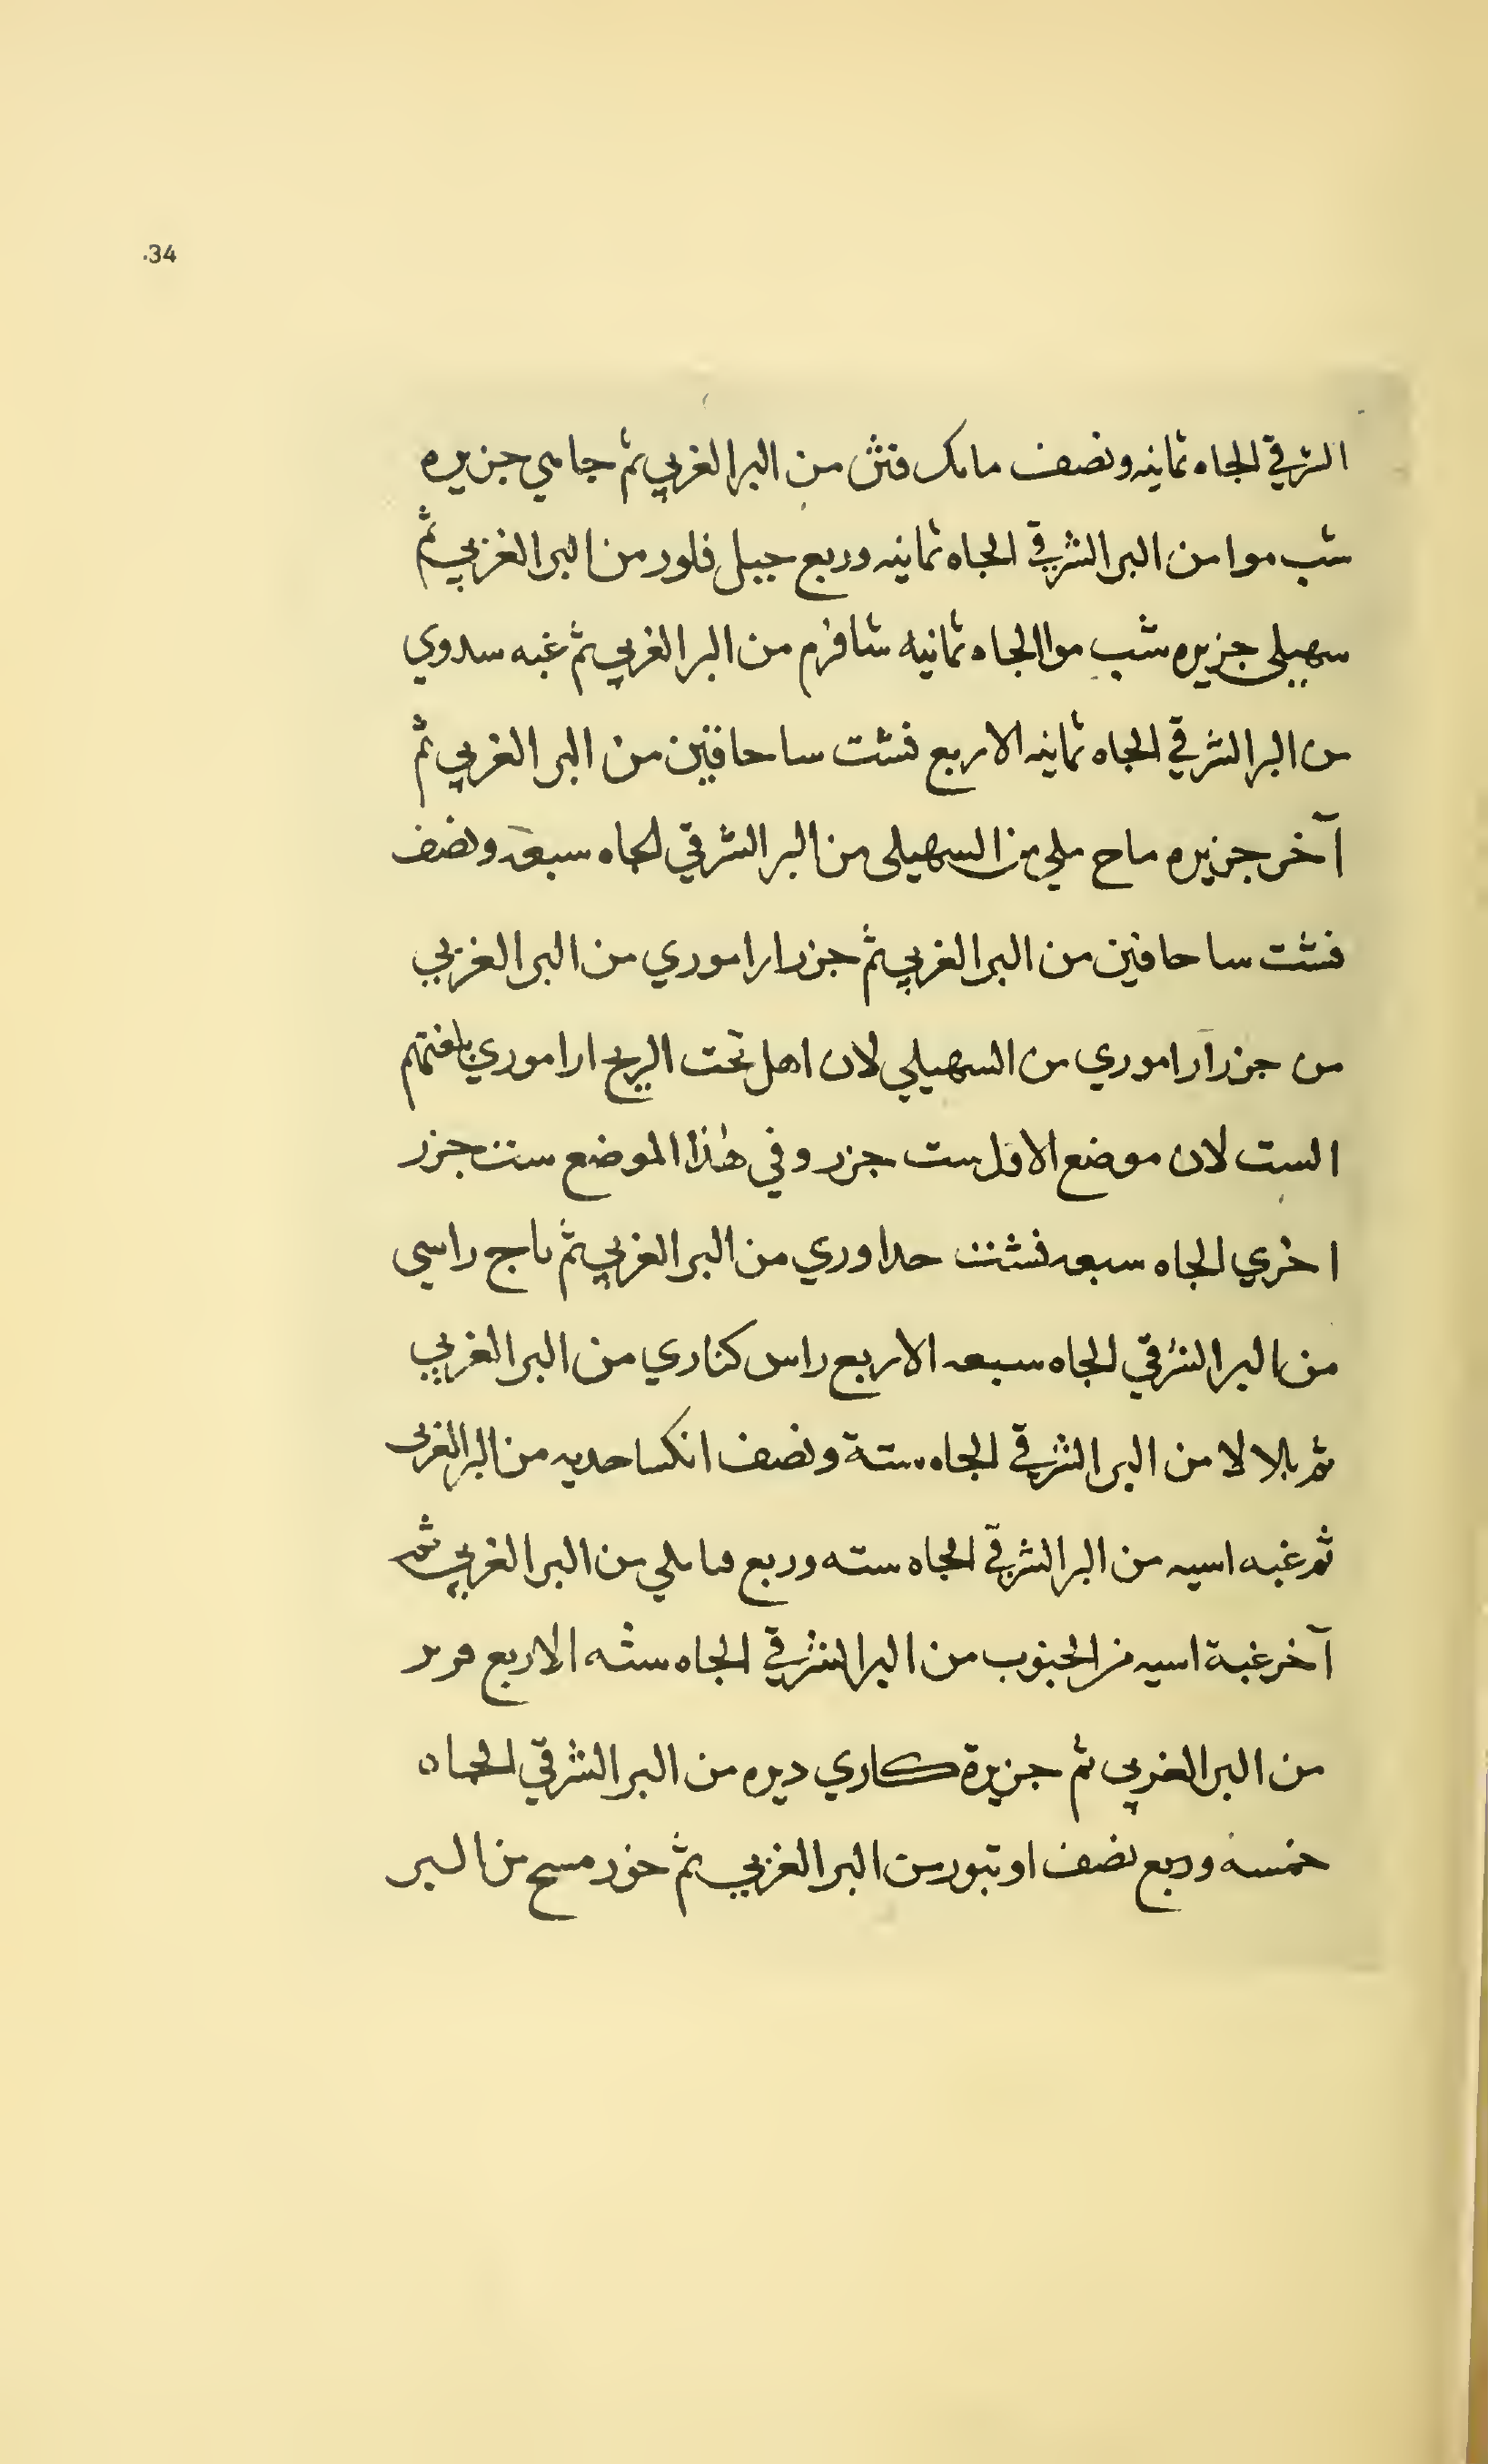 34
الشرقي الجاه ثمانيه ونصف مابك فنش من البر الغربي ثم جامي جزيره
شب موا من البر الشرقي الجاه ثمانيه وربع جبل فلور من البر الغربي ثم
سهيلي جزيره شب موا الجاه ثمانيه شافرم من البر الغربي ثم غبه سدوي
من البر الشرقي الجاه ثمانيه الاربع فشت ساحافين من البر الغربي ثم
آخر جزيره ماح ملي من السهيلي من البر الشرقي الجاه سبعه ونصف
فشت ساحافين من البر الغربي ثم جزر اراموري من البر الغربي
من جزر اراموري من السهيلي لان اهل تحت الريح اراموري بلغتهم
الست لان موضع الاول ست جزر وفي هذا الموضع ست جزر
اخري الجاه سبعه فشت حداوري من البر الغربي ثم ناج راسي
من البر الشرقي الجاه سبعه الاربع راس كناري من البر الغربي
ثم بلالا من البر الشرقي الجاه ستة ونصف انكساحديه من البر الغربي
ثم غبه اسيه من البر الشرقي الجاه سته وربع من البر الغربي ثم
آخر غبة اسيه من الجنوب من البر الشرقي الجاه سته الاربع
من البر الغربي ثم جزيرة كاري ديره من البر الشرقي الجاه
خمسه وربع نصف اوتبور من البر الغربي ثم خور مسح من البر